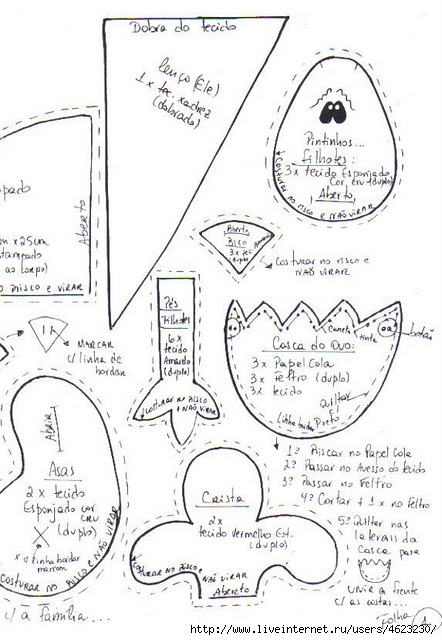 Dobra do tecido
Lenço (Ele)
1 x tec. xadrez
(dobrado)
Pintinhos...
filhotes:
3x tecido Esponjado
Cor cru (duplo)
Aberto
Costurar no risco e NÃO VIRAR
pado
m x 25cm
stampado
ao longo)
RISCO E VIRAR
Aberto
Aberto
Bico
3x tec.
Amarelo
duplo
Costurar no risco e
NÃO VIRAR
MARCAR
c/ linha de
bordar
Pés
Filhotes
6x
tecido
Amarelo
(duplo)
Costurar no Risco
e NÃO VIRAR
Caneta
tinta
botão
Casca do Ovo:
3x Papel Cola
3x Feltro (duplo)
3x tecido
Quiltar
Linha bordar Preto
1º Riscar no Papel Cola
2º Passar no Avesso do tecido
3º Passar no Feltro
4º Cortar + 1x no Feltro
5º Quilter nas
laterais da
casca para
unir a frente
c/ as costas...
Abrir
Asas
2x tecido
Esponjado cor
cru
(duplo)
x c/ linha bordar
marrom
COSTURAR NO RISCO E NÃO VIRAR
Crista
2x
tecido vermelho Est.
(duplo)
Costurar no Risco e NÃO VIRAR
Aberto
c/ a família...
Folha 1
http://www.liveinternet.ru/users/4623230/